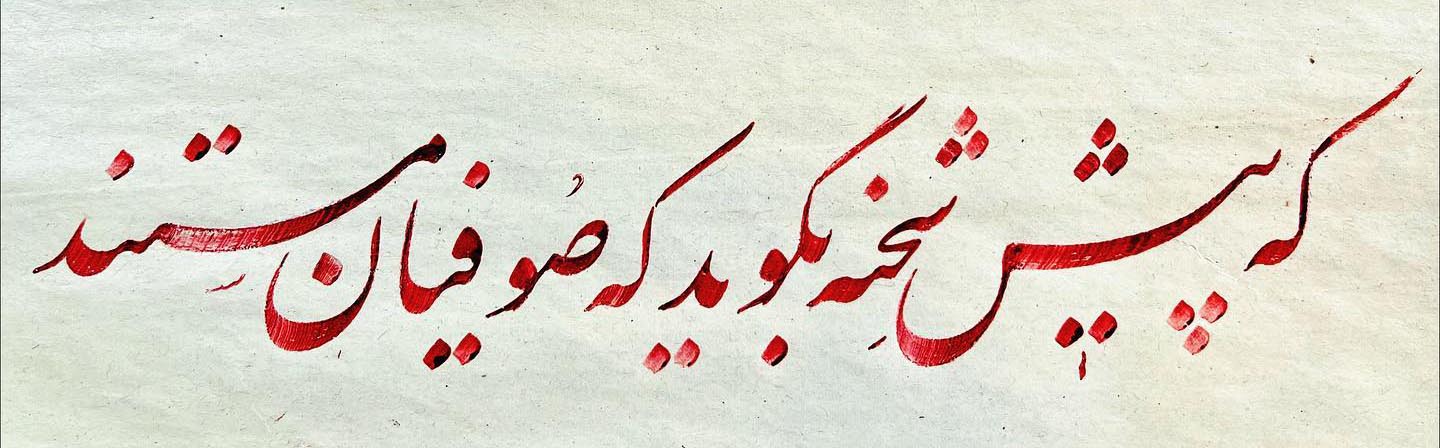 که پیش شحنه بگوید که صوفیان مستند